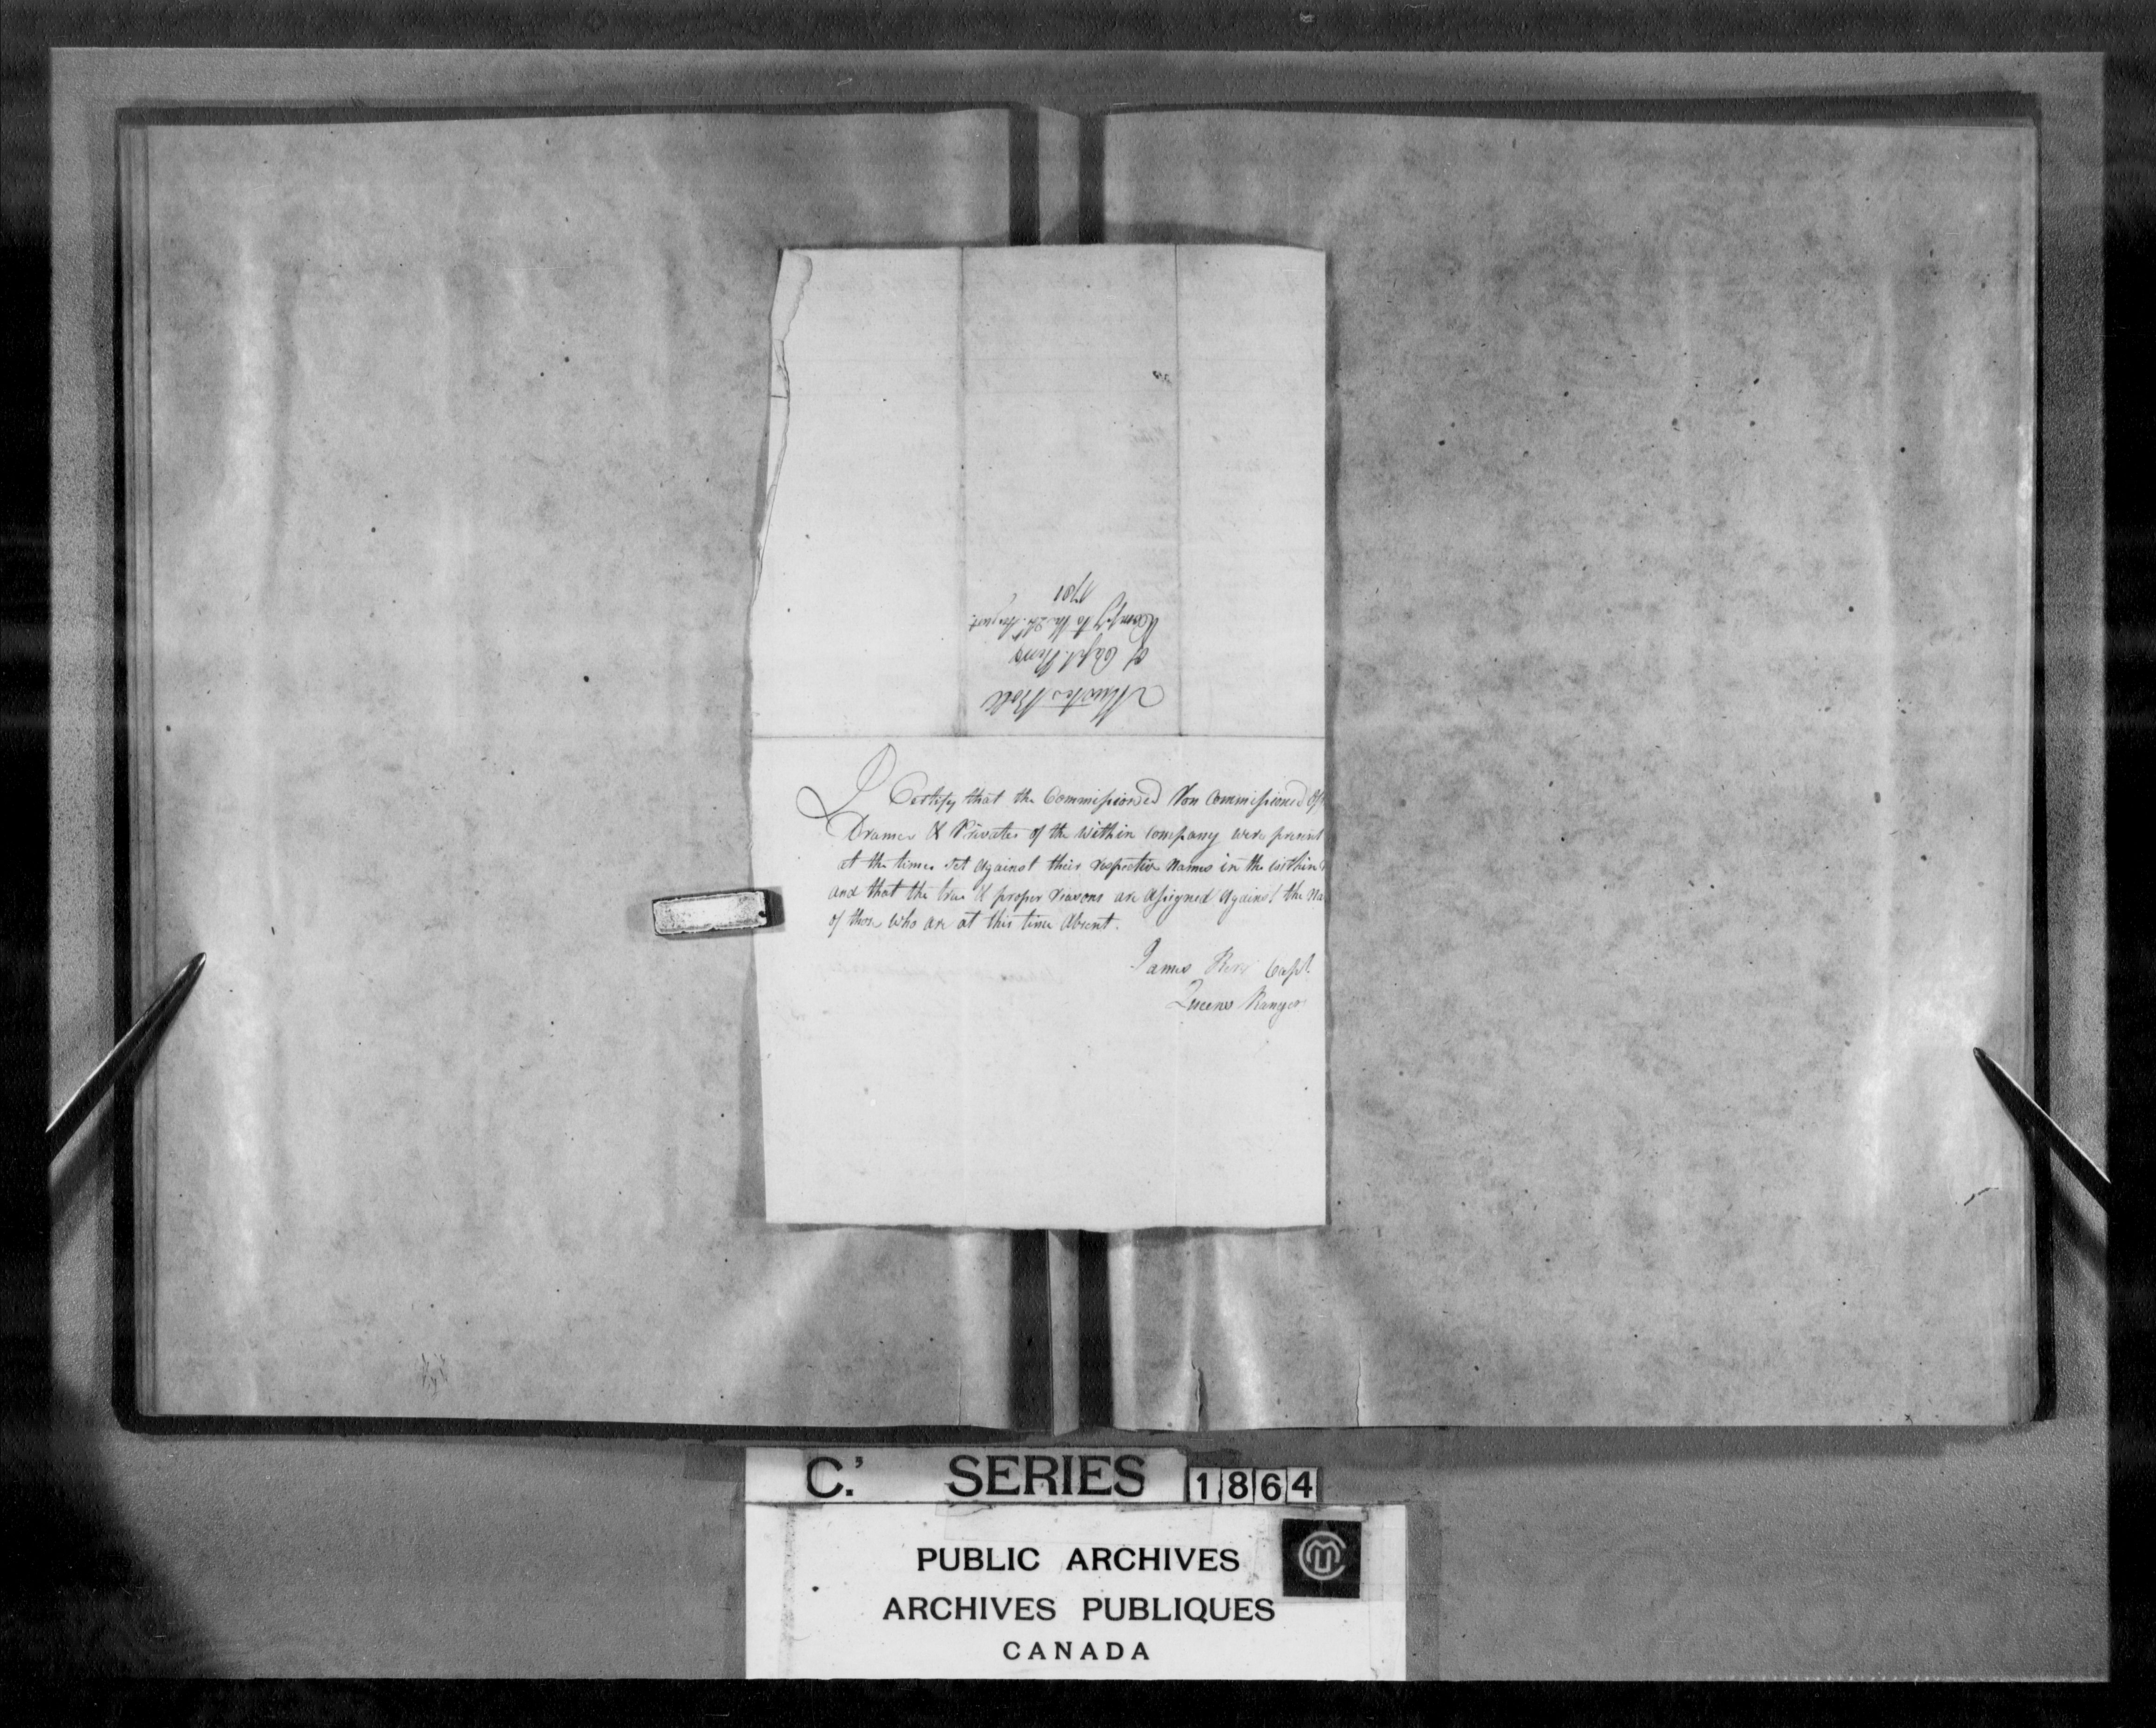 Muster Roll
of Capt. Kerrs
Compy to the 24th August
1781
I Certify that the Commissioned Non Commissioned Off
Drumrs & Privates of the within Company were present
at the times set against their respective Names in the within
and that the true & proper reasons are assigned against the Na
of those who are at this time Absent.
James Kerr Capt.
Queens Rangers
C.' SERIES 1864
PUBLIC ARCHIVES
ARCHIVES PUBLIQUES
CANADA